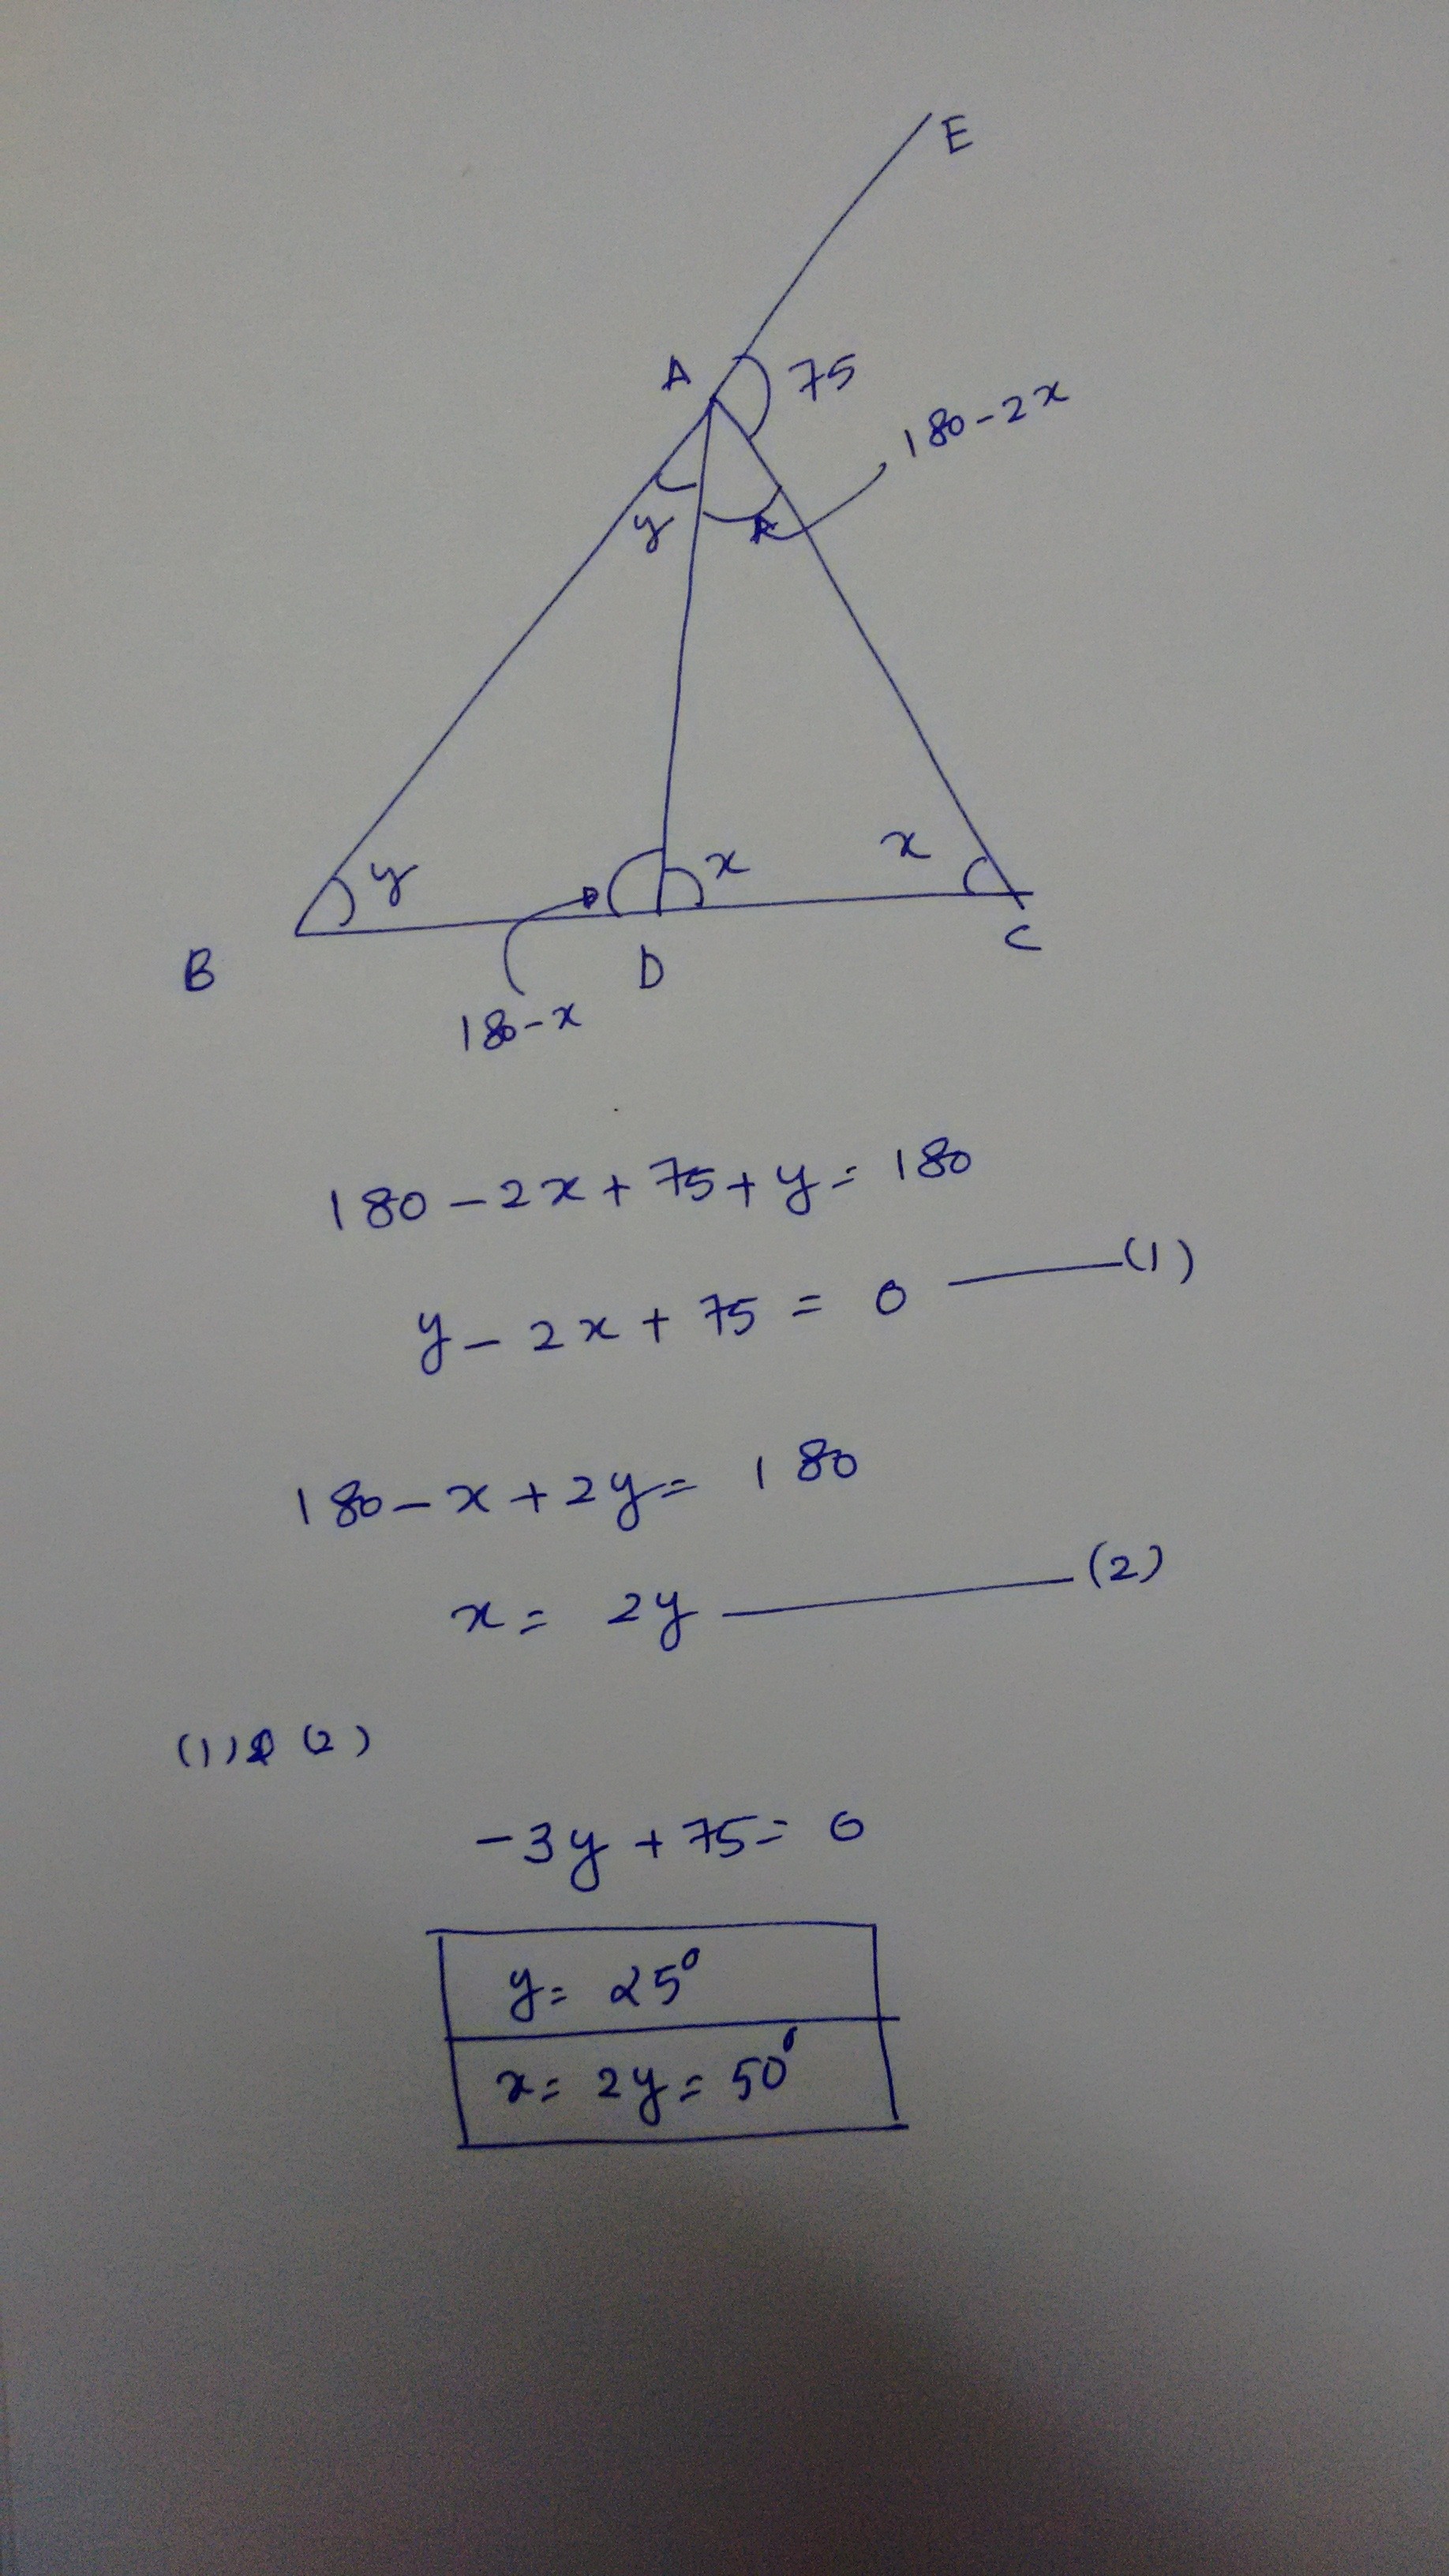 E
A
75
180-2x
y
y
x
x
B
D
C
180-x
180-2x+75+y=180
y-2x+75=0 (1)
180-x+2y=180
x=2y (2)
(1) & (2)
-3y+75=0
y=25°
x=2y=50°